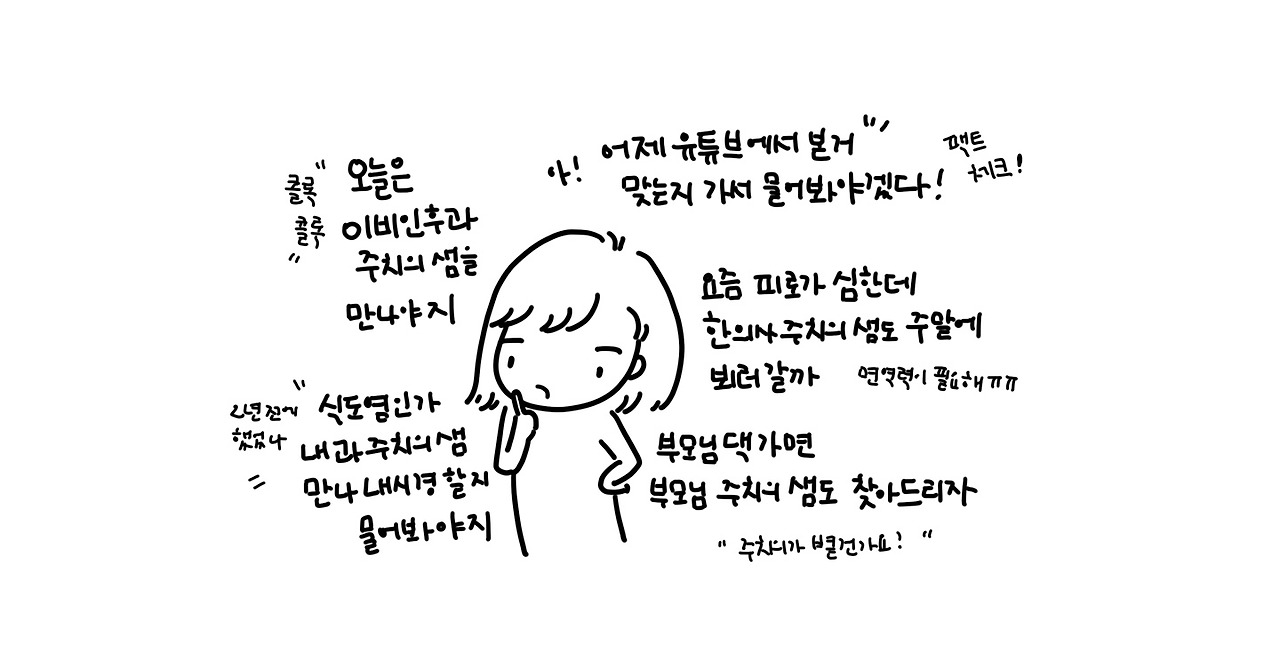 콜록
콜록
오늘은
이비인후과
주치의 샘을
만나야지
아!
어제 유튜브에서 본거
맞는지 가서 물어봐야겠다!
팩트
체크!
요즘 피로가 심한데
한의사 주치의 샘도 주말에
뵈러갈까
면역력이 필요해ㅠㅠ
2년 전에
했었나
식도염인가
내과 주치의 샘
만나 내시경 할지
물어봐야지
부모님댁 가면
부모님 주치의 샘도 찾아드리자
"주치의가 별건가요?"